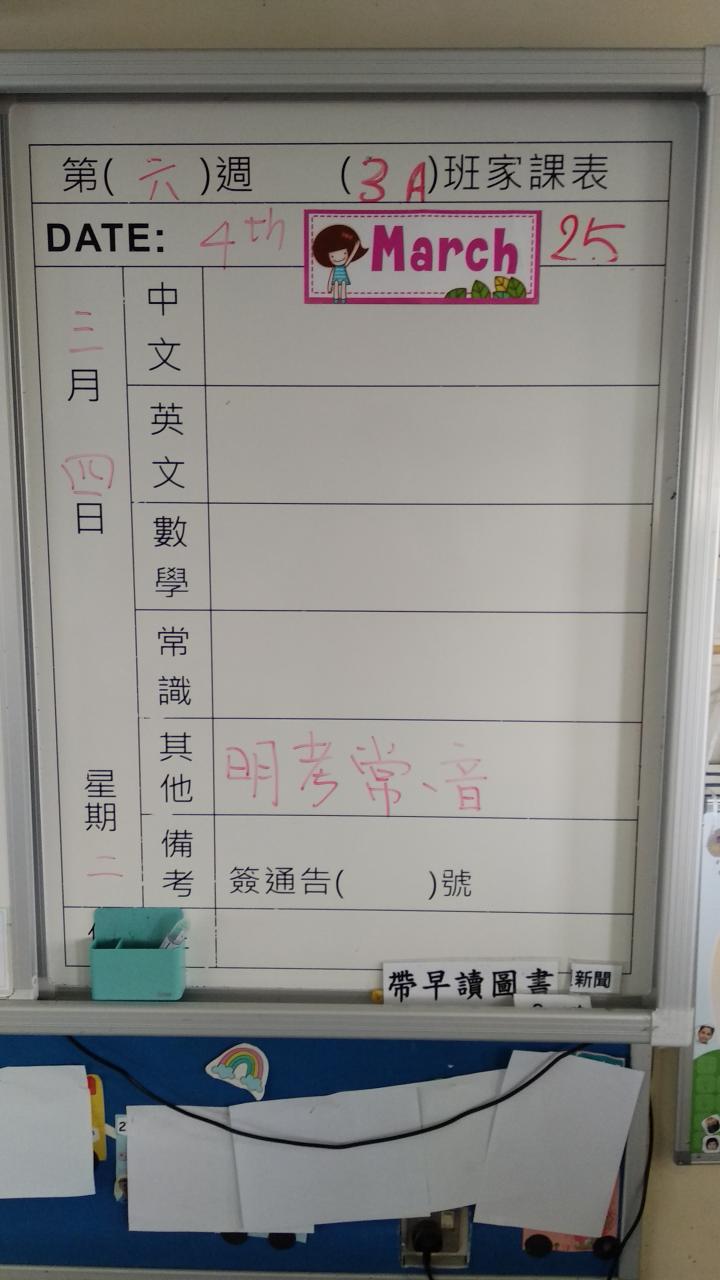 第(六)週 (3A)班家課表
DATE: 4th March 25
三月四日
星期二
中文
英文
數學
常識
其他 明考常、音
備考 簽通告( )號
帶早讀圖書 新聞
2